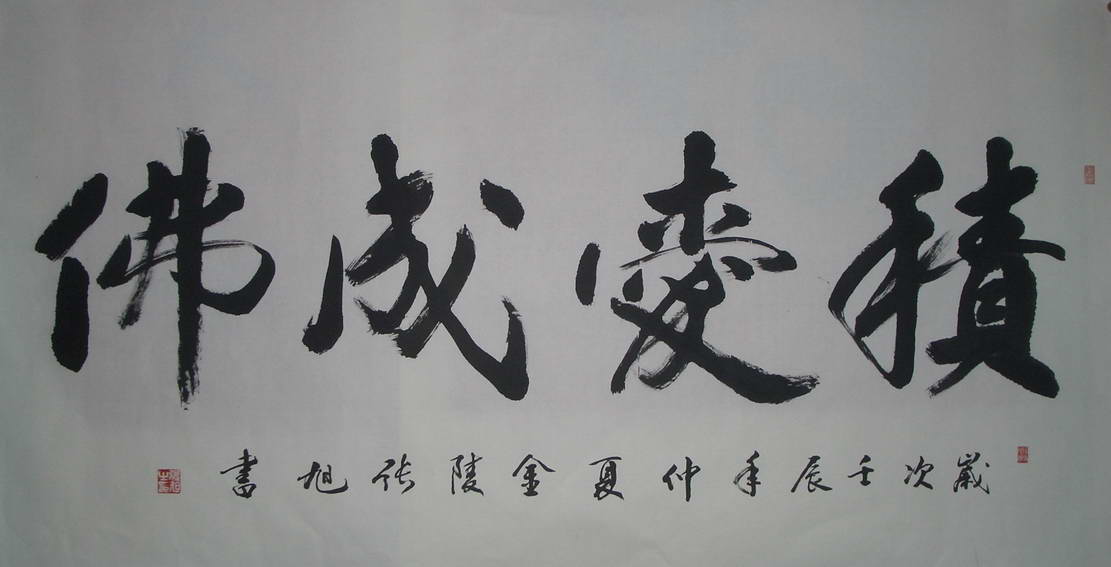 積愛成佛
歲次壬辰年仲夏金陵張旭書